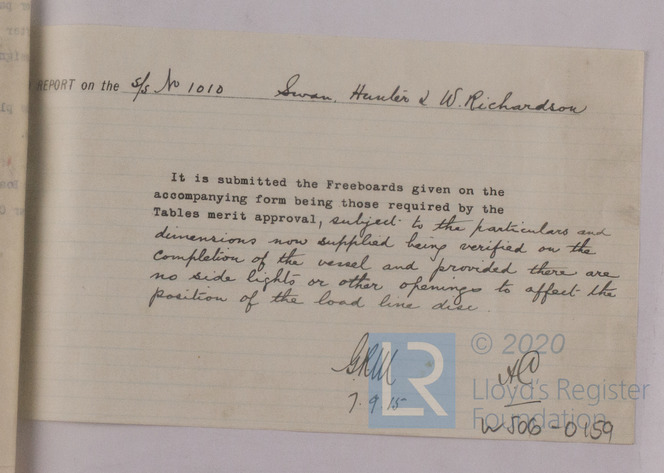 REPORT on the S/S No 1010 Swan, Hunter & W. Richardson
It is submitted the Freeboards given on the
accompanying form being those required by the
Tables merit approval, subject to the particulars and
dimensions now supplied being verified on the
completion of the vessel and provided there are
no side lights or other openings to affect the
position of the load line disc.
GRM
7.9.15
LR
© 2020
Lloyd's Register
Foundation
W506-0159